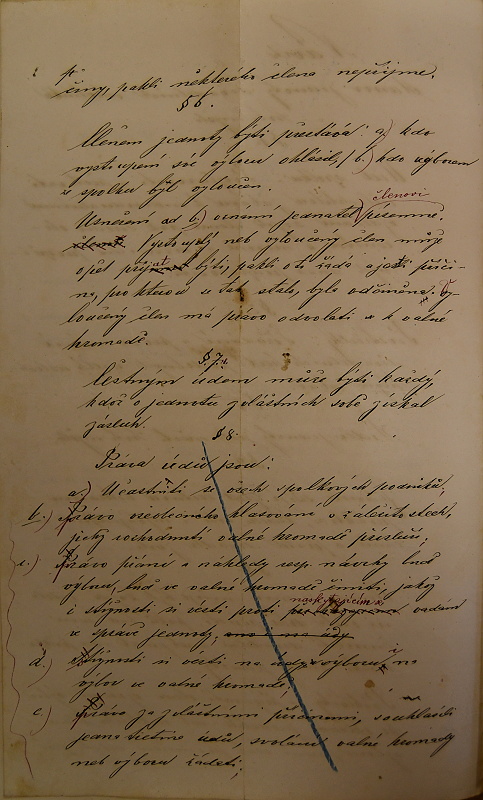 činy, pakli některého člena nepřijme.
§ 6.
Členem jednoty býti přestává: a.) kdo
vystoupení své výboru ohlásil, b.) kdo výborem
z spolku byl vyloučen.
členovi
Usnešení ad b.) oznámí jednatel písemně.
Vystouplý neb vyloučený člen může
opět přijat býti, pakli o to žádá a jesti příči-
na, pro kterou se tak stalo, byla odčiněna. Vy-
loučený člen má právo odvolati se k valné
hromadě.
§ 7.
Čestným údem může býti každý,
kdož o jednotu zvláštních sobě získal
zásluh.
§ 8.
Práva údů jsou:
a.) Účastniti se všech spolkových podniků,
b.) Právo všeobecného hlasování o záležitostech,
jichž rozhodnutí valné hromadě přísluší;
c.) Právo přání a náhledy resp. návrhy buď
výboru, buď ve valné hromadě činiti, jakož
i stížnosti si vésti proti vadám
ve správě jednoty,
d.) Stížnosti si vésti na výboru, na
výbor ve valné hromadě;
e.) Právo za zvláštními příčinami, souhlasili
jedna třetina údů, svolání valné hromady
neb výboru žádati;